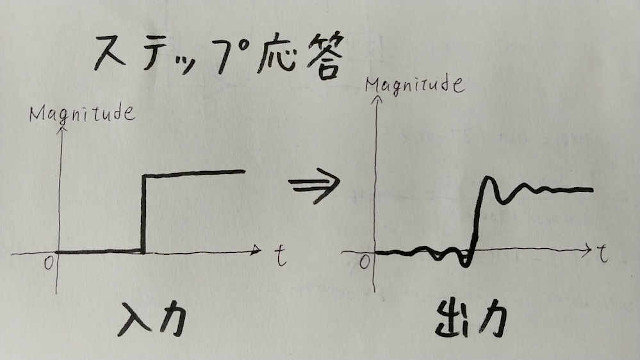 ステップ応答
Magnitude
0
t
入力
⇒
Magnitude
0
t
出力